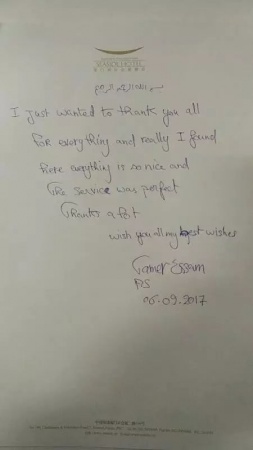 بسم الله الرحمن الرحيم
I just wanted to thank you all
for everything and really I found
here everything is so nice and
the service was perfect
Thanks a lot
wish you all my best wishes
Tamer Essam
06.09.2017